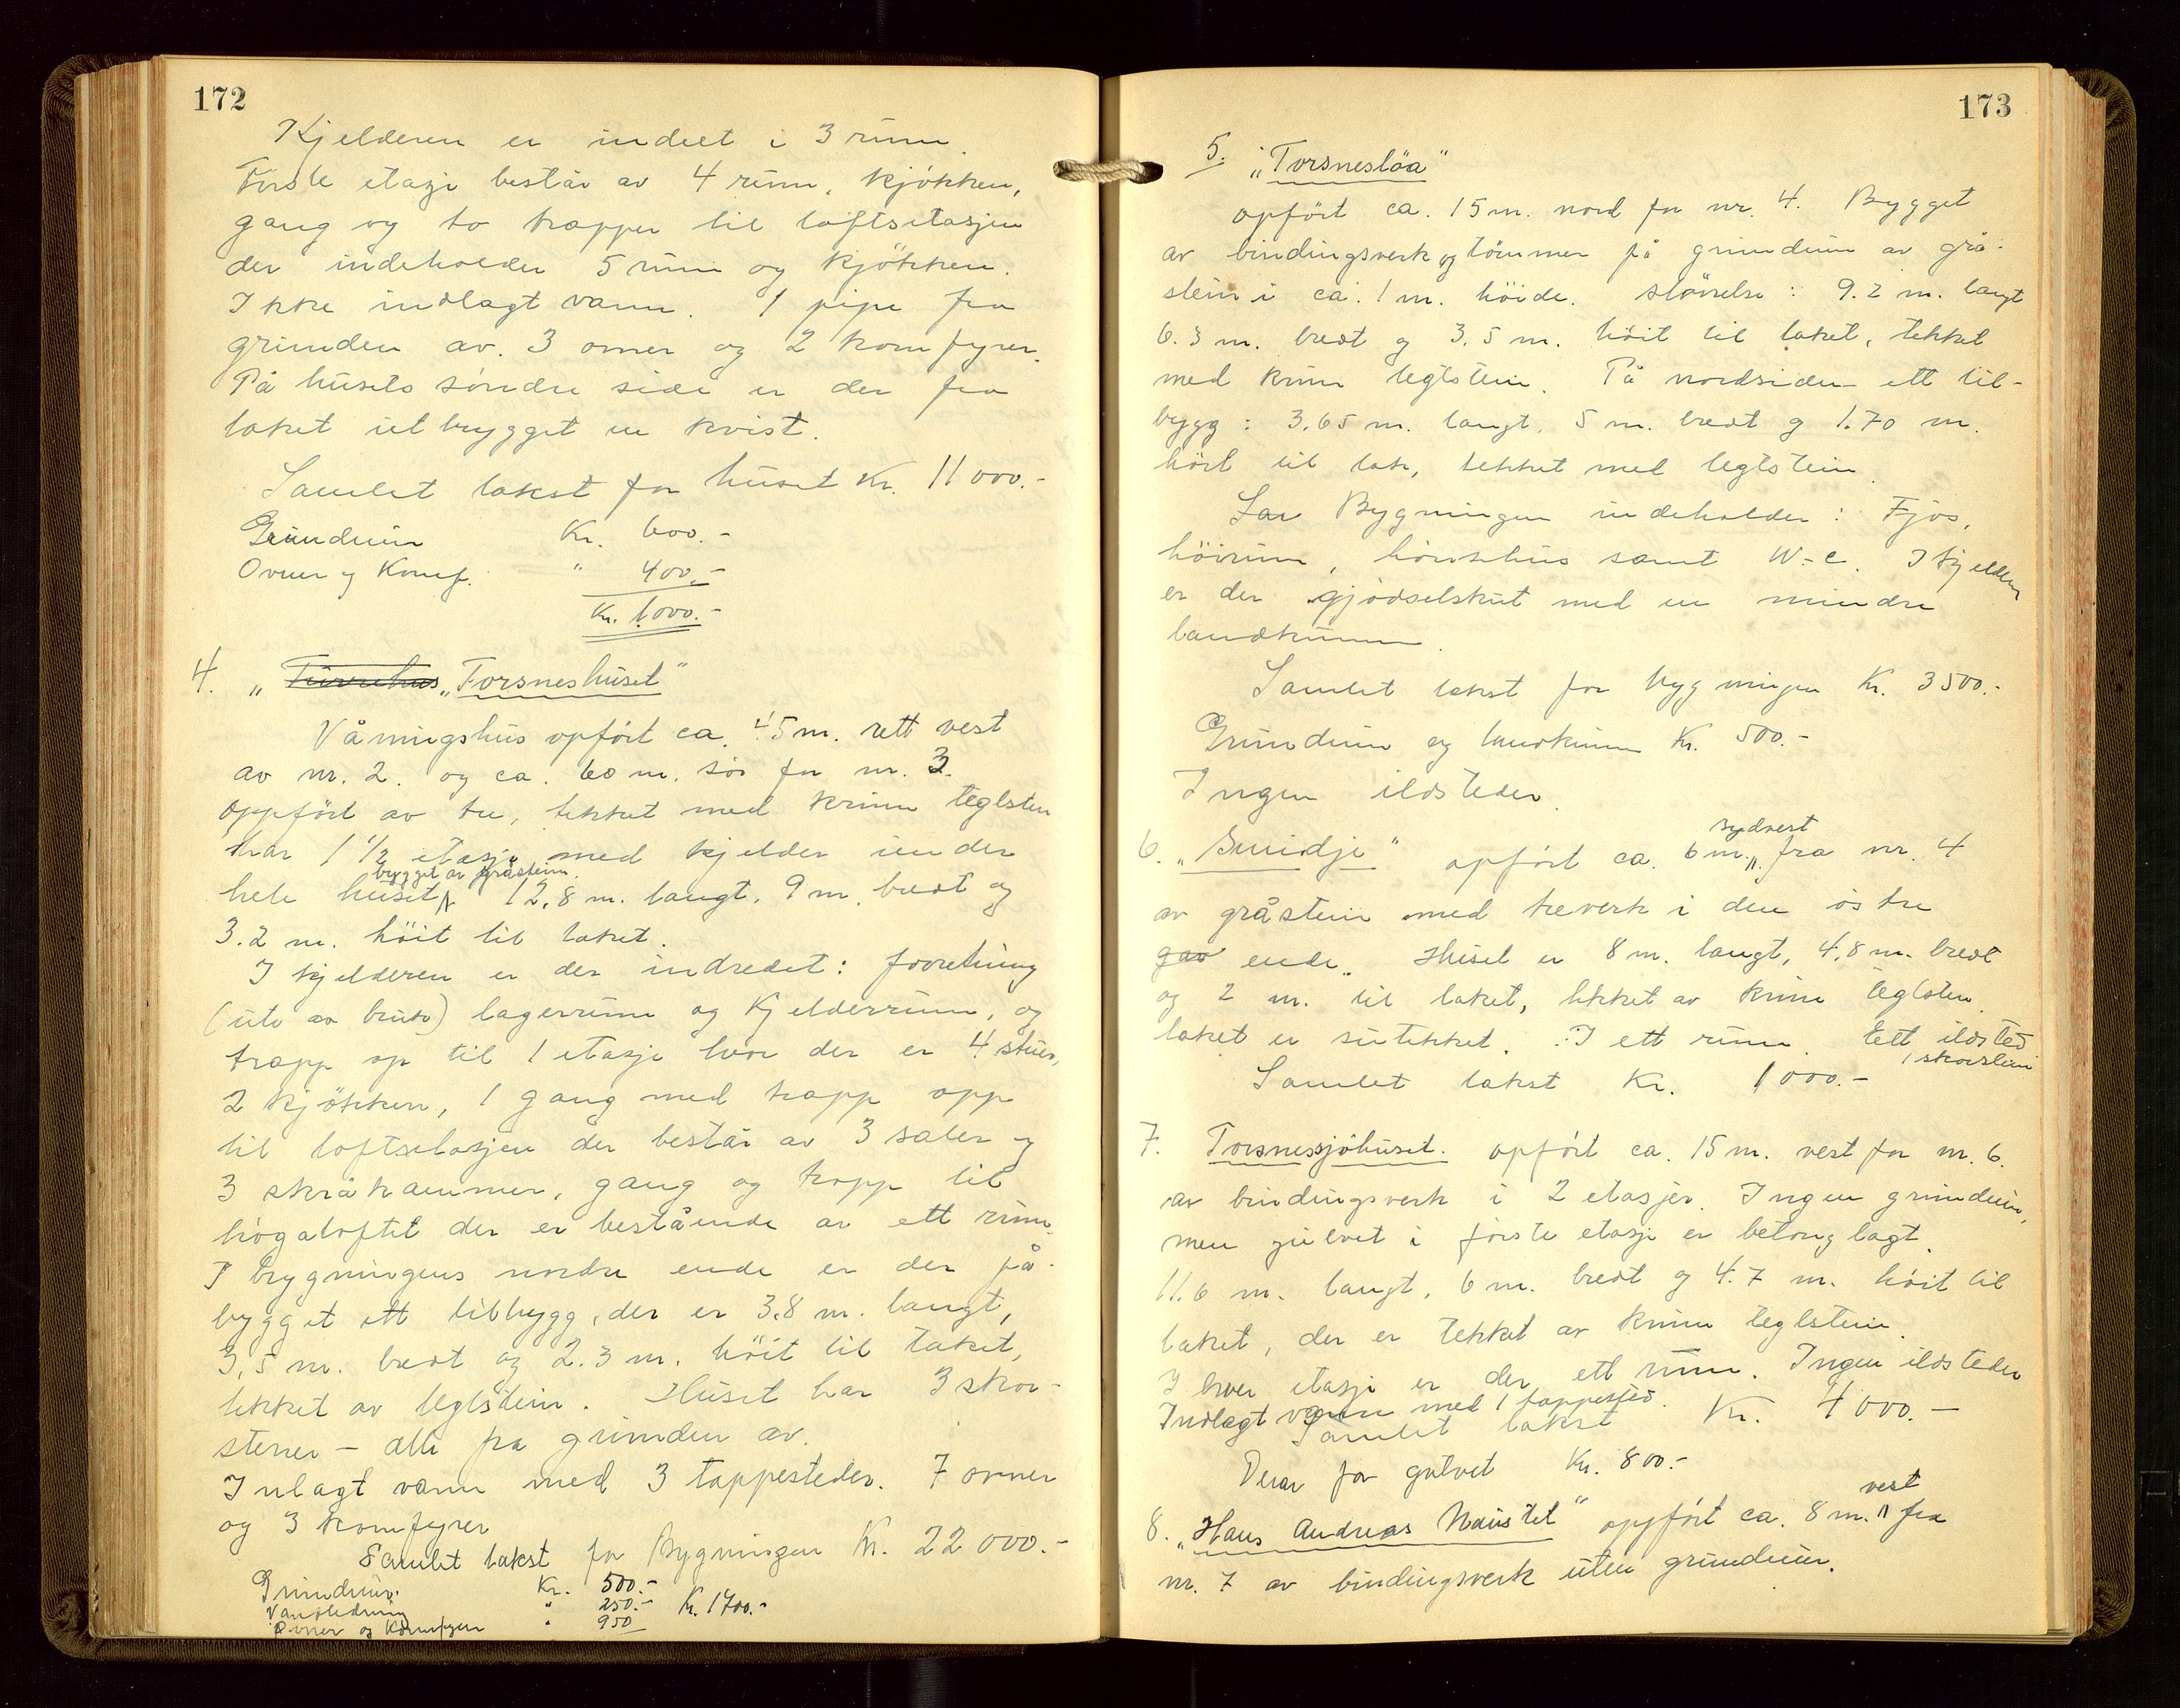 172
Kjelderen er indeet i 3 rum.
Første etasje består av 4 rum, kjøkken,
gang og to trapper til loftsetasjen
der indeholder 5 rum og kjøkken.
Ikke indlagt vann. 1 pipe fra
grunden av. 3 ovner og 2 komfyrer.
På husets søndre side er der fra
taket utbygget en kvist.
Samlet takst for huset Kr. 11000.-
Grundmur Kr. 600.-
Ovner og Komf. " 400.-
Kr. 1000.-
4. „ Torsneshuset"
Våningshus opført ca. 45 m. rett vest
av nr. 2. og ca. 60 m. sør for nr. 3.
Oppført av tre, tekket med krum teglsten
har 1 1/2 etasje med kjelder under
bygget av gråstein.
hele huset 12,8 m. langt, 9 m. bredt og
3.2 m. høit til taket.
I kjelderen er der indredet: forretning
(ute av bruk) lagerrum og Kjelderrum, og
trapp op til 1 etasje hvor der er 4 stuer,
2 kjøkken, 1 gang med trapp opp
til loftsetasjen der består av 3 saler og
3 skråkammer, gang og trapp til
høgaloftet der er bestående av ett rum.
I bygningens nordre ende er der på-
bygget ett tilbygg, der er 3.8 m. langt,
3,5 m. bredt og 2.3 m. høit til taket,
tekket av teglstein. Huset har 3 skor-
stener - alle fra grunden av.
Inlagt vann med 3 tappesteder. 7 ovner
og 3 komfyrer
Samlet takst for Bygningen Kr. 22 000.-
Grundmur. Kr. 500.-
Vandledning " 250.- Kr. 1700.-
Ovner og Komfyrer " 950
173
5. „Torsnesløa"
opført ca. 15 m. nord for nr. 4. Bygget
av bindingsverk og tømmer på grundmur av grå-
stein i ca. 1 m. høide. Størrelse: 9.2 m. langt
6.3 m. bredt og 3.5 m. høit til taket, tekket
med krum teglstein. På nordsiden ett til-
bygg: 3.65 m. langt, 5 m. bredt og 1.70 m.
høit til tak, tekket med teglstein.
Bygningen indeholder: Fjøs,
høirum, hønsehus samt W.-c. I kjelderen
er der gjødselskut med en mindre
landkumm.
Samlet takst for bygningen Kr. 3500.-
Grundmur og landkumm Kr. 500.-
Ingen ildsteder.
sydvest
6. „Smidje" opført ca. 6 m. fra nr. 4
av gråstein med treverk i den østre
gav ende. Huset er 8 m. langt, 4,8 m. bredt
og 2 m. til taket, tekket av krum teglsten
taket er sutekket. I ett rum. Ett ildsted
1 skorstein
Samlet takst Kr. 1000.-
7. Torsnessjøhuset. opført ca. 15 m. vest for nr. 6.
av bindingsverk i 2 etasjer. Ingen grundmur,
men gulvet i første etasje er betonglagt.
11.6 m. langt, 6 m. bredt og 4.7 m. høit til
taket, der er tekket av krum teglstein.
I hver etasje er der ett rum. Ingen ildsteder
Indlagt vann med 1 tappested.
Samlet takst Kr. 4000.-
Derav for gulvet Kr. 800.-
vest
8. „Hans Andreas Naustet" opført ca. 8 m. fra
nr. 7 av bindingsverk uten grundmur.